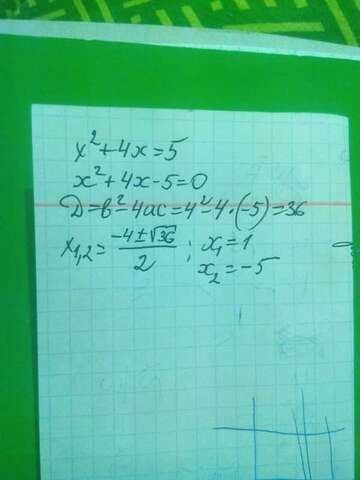 x²+4x=5
x²+4x-5=0
D=b²-4ac=4²-4·(-5)=36
x₁,₂=(-4±√36)/2; x₁=1
x₂=-5